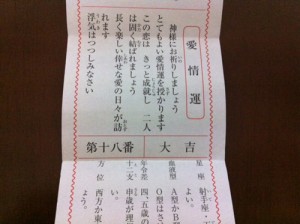 愛情運
神様にお祈りしましょう
とてもよい愛情運を授かります
この恋は きっと成就し 二人
は固く結ばれましょう
長く楽しい倖せな愛の日々が訪
れます
浮気はつつしみなさい
第十八番
大吉
星座 射手座・
よい。
血液型 A型かB
O型はさ
年令差 四、五歳の
十二支 申歳が理
い。
方位 西方か東
ょう。